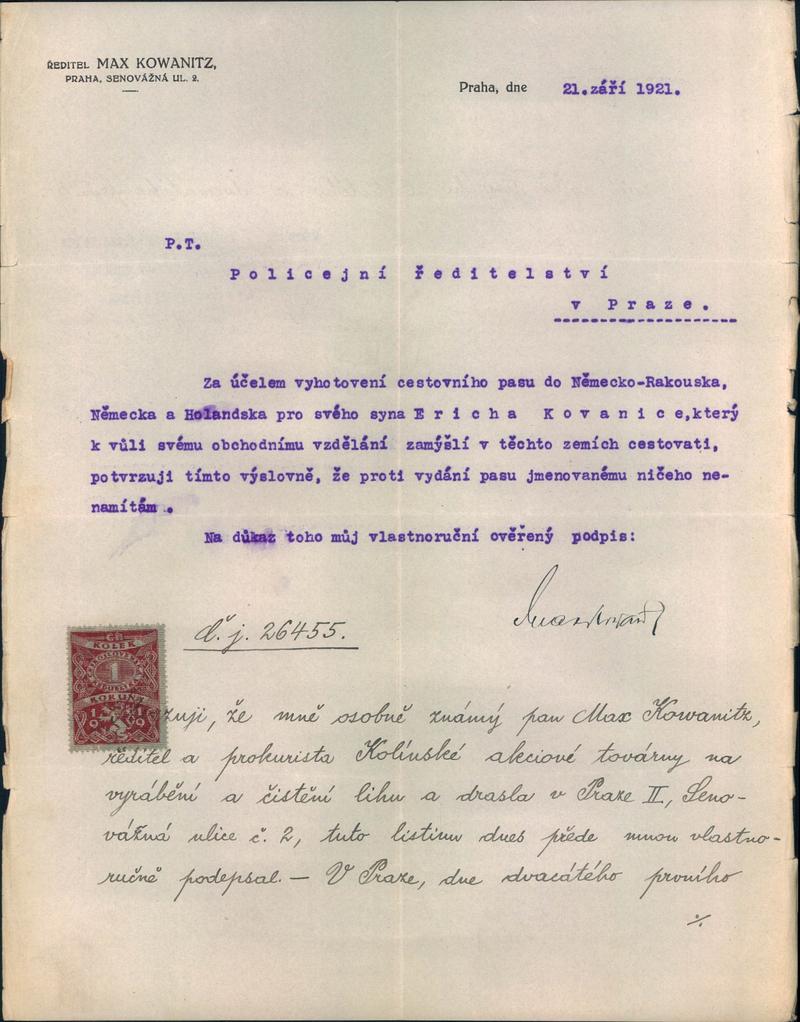 ŘEDITEL MAX KOWANITZ,
PRAHA, SENOVÁŽNÁ UL. 2.
Praha, dne 21.září 1921.
P.T.
Policejní ředitelství
v Praze.
Za účelem vyhotovení cestovního pasu do Německo-Rakouska,
Německa a Holandska pro svého syna Ericha Kovanice,který
k vůli svému obchodnímu vzdělání zamýšlí v těchto zemích cestovati,
potvrzuji tímto výslovně, že proti vydání pasu jmenovanému ničeho ne-
namítám.
Na důkaz toho můj vlastnoruční ověřený podpis:
č. j. 26455.
KOLEK
1
KORUNA
1919
že mně osobně známý pan Max Kowanitz,
ředitel a prokurista Kolínské akciové továrny na
vyrábění a čistění lihu a drasla v Praze II, Seno-
vážná ulice č. 2, tuto listinu dnes přede mnou vlastno-
ručně podepsal. — V Praze, dne dvacátého prvního
./.